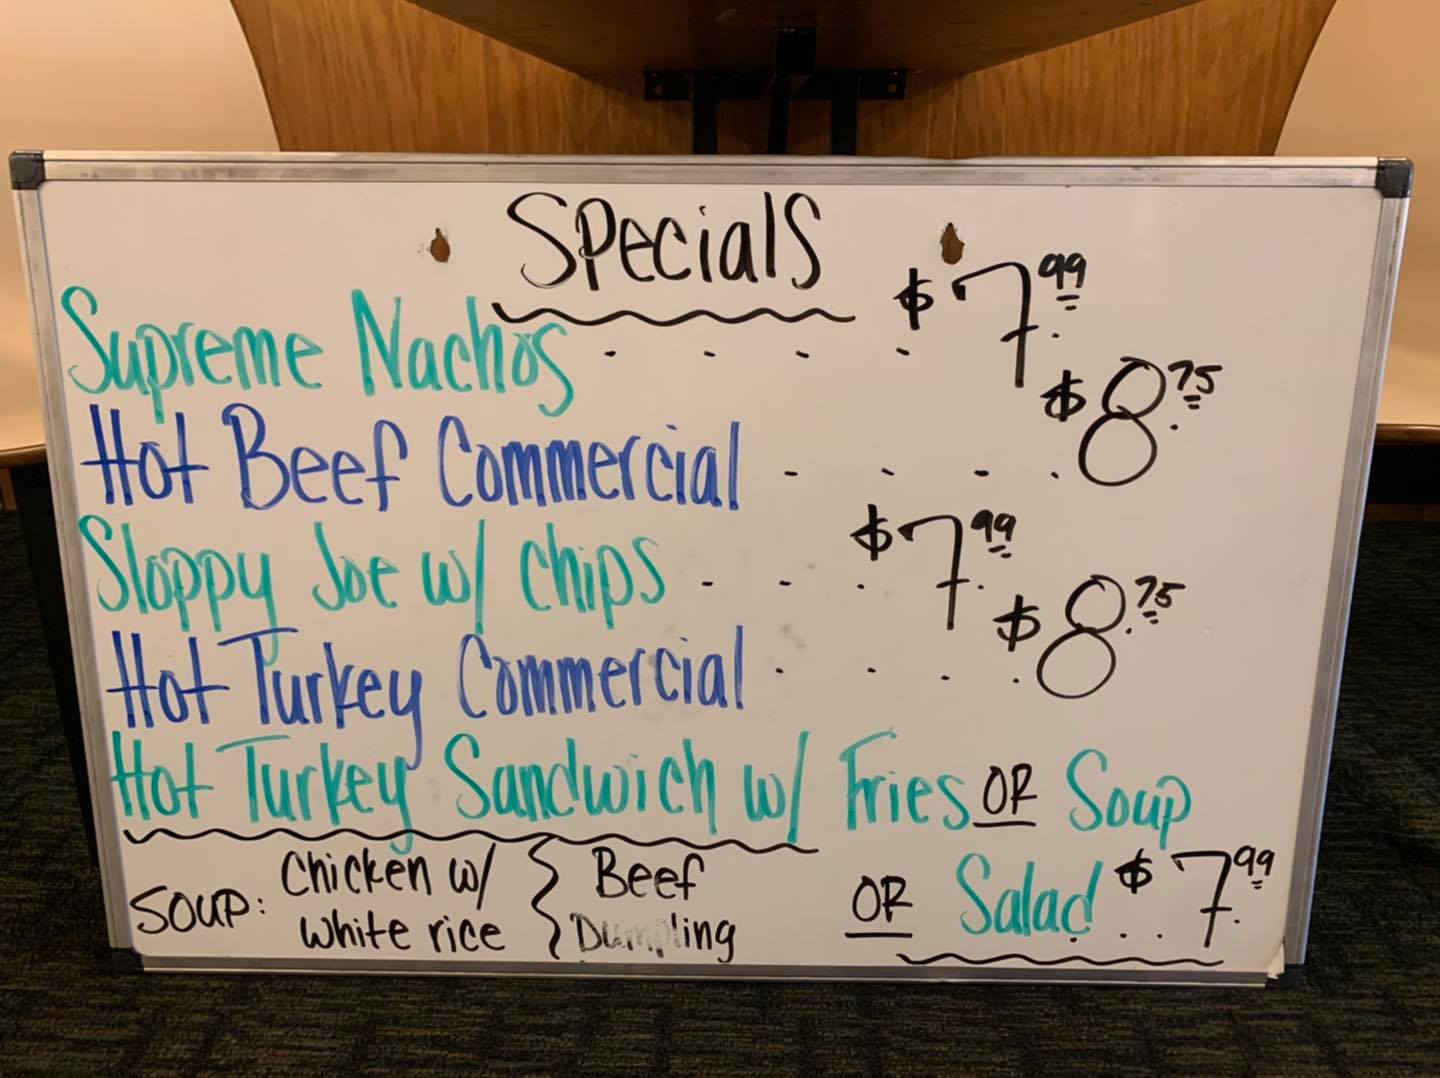 Specials
Supreme Nachos . . . . $7.99
Hot Beef Commercial . . . . $8.75
Sloppy Joe w/ chips . . . $7.99
Hot Turkey Commercial . . . . $8.75
Hot Turkey Sandwich w/ Fries OR Soup
OR Salad . . . $7.99
Soup: Chicken w/ white rice } Beef Dumpling